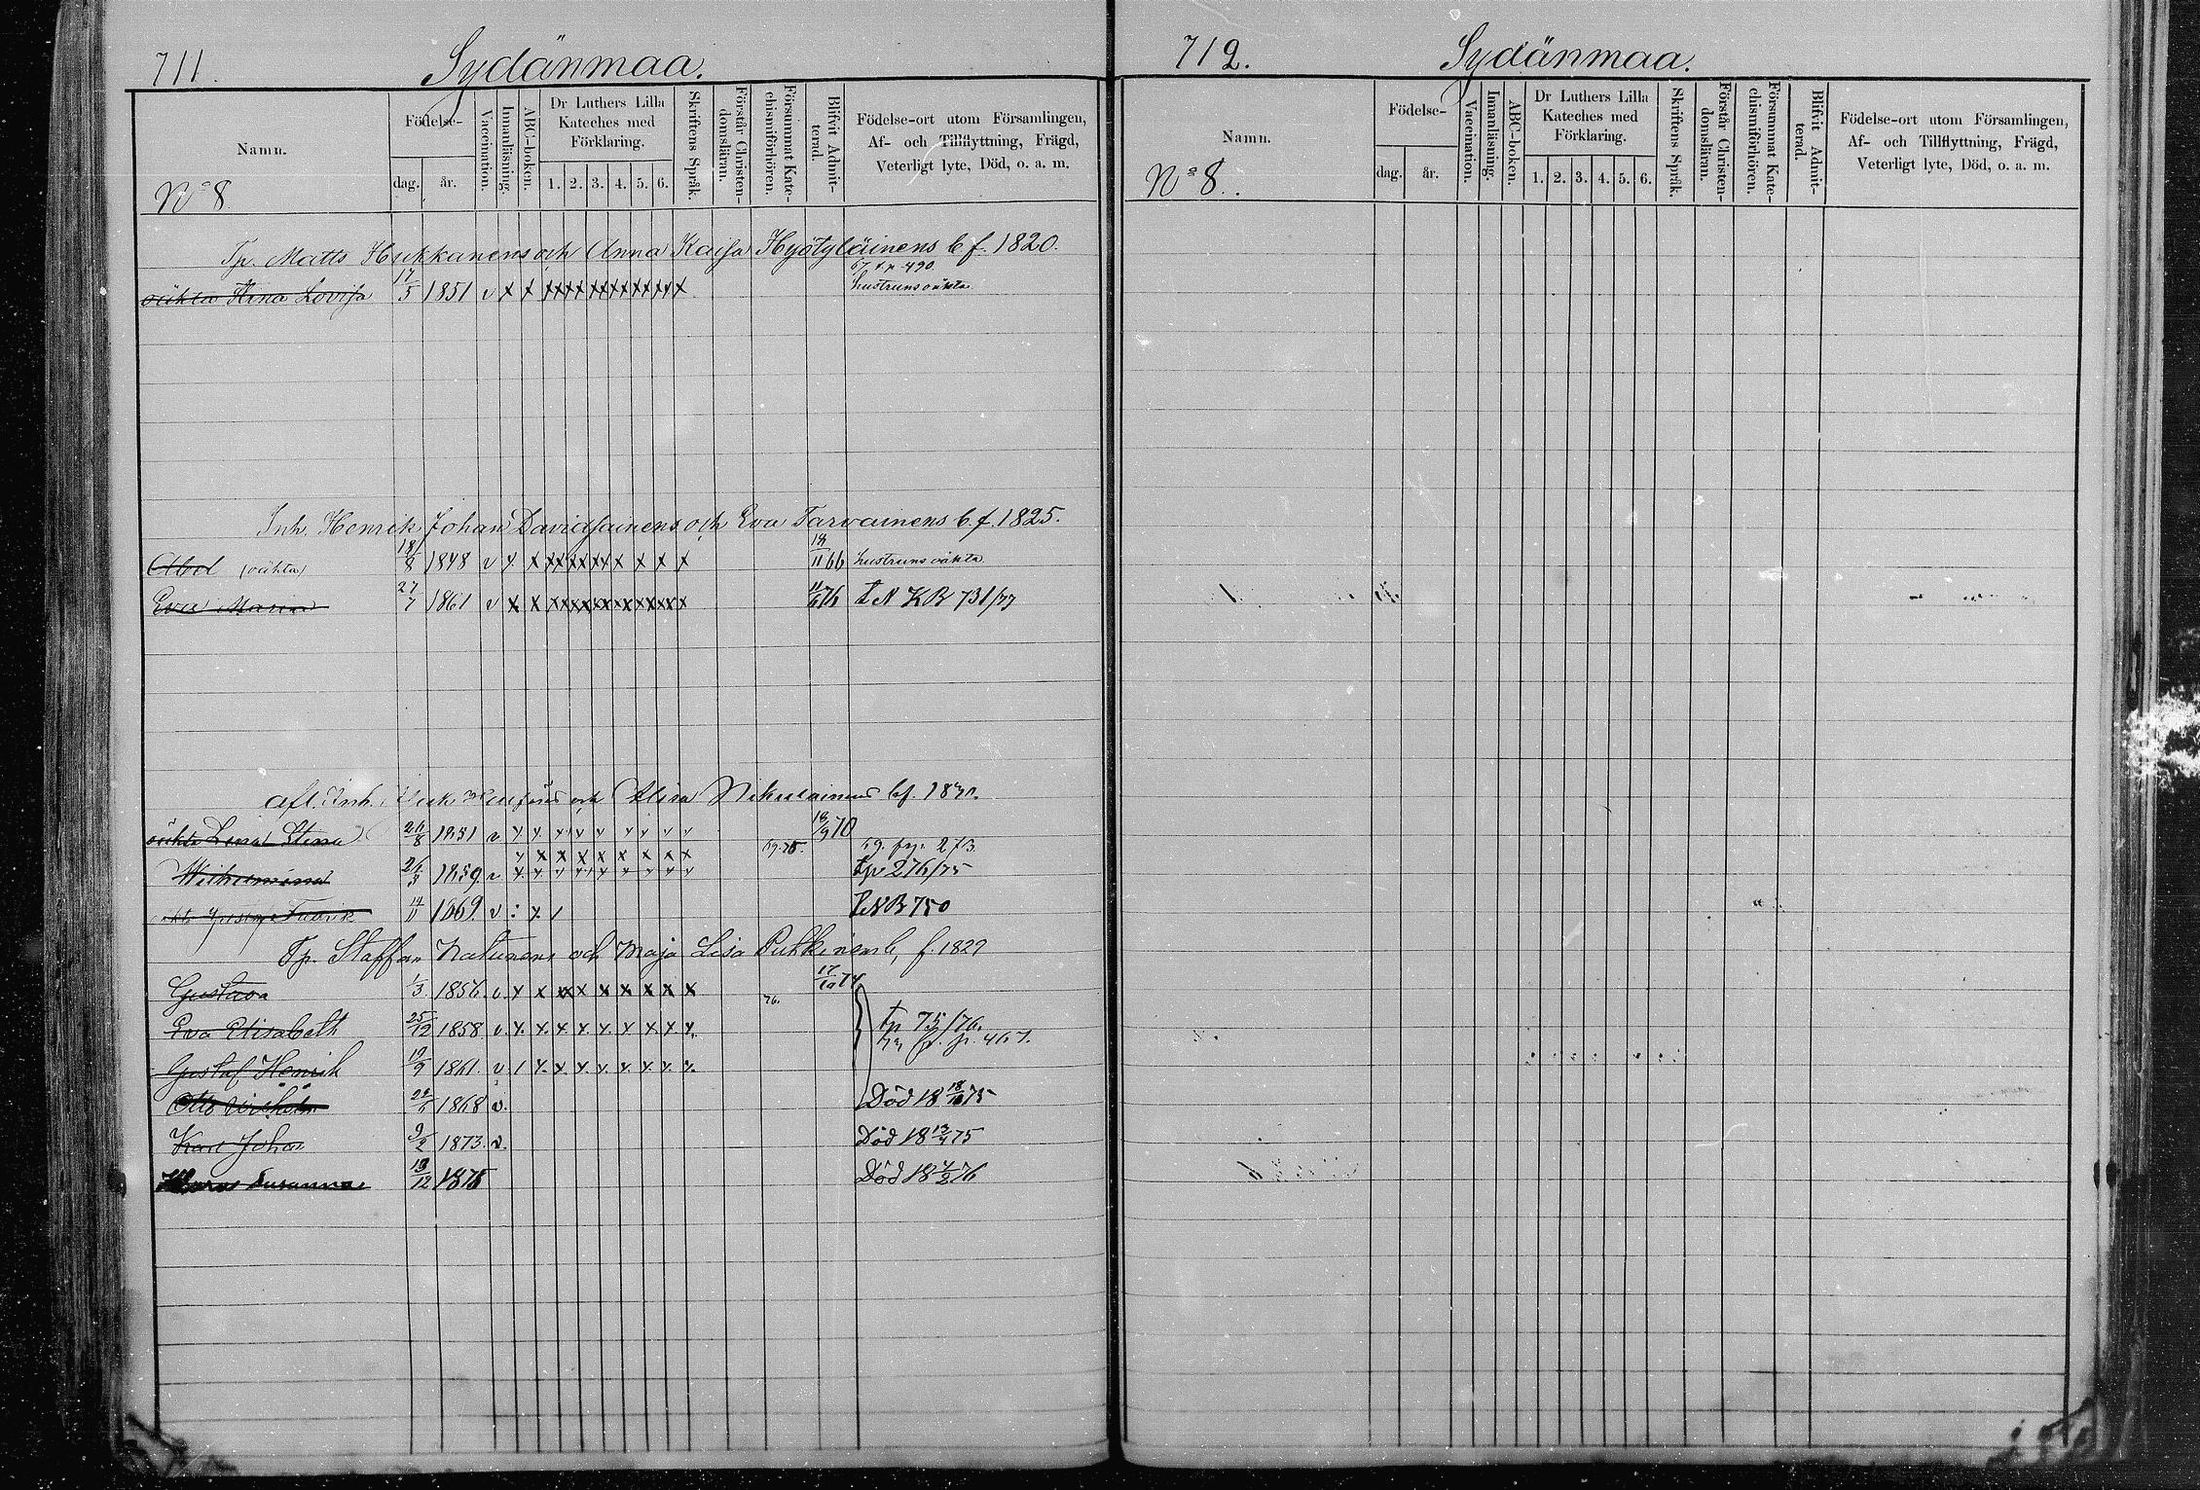 711. Sydänmaa.
Namn.
Födelse-
dag. år.
Vaccination.
Innanläsning.
ABC-boken.
Dr Luthers Lilla Kateches med Förklaring.
1. 2. 3. 4. 5. 6.
Skriftens Språk.
Förstår Christen-domsläran.
Försummat Kate-chismiförhören.
Blifvit Admit-terad.
Födelse-ort utom Församlingen,
Af- och Tillflyttning, Frägd,
Veterligt lyte, Död, o. a. m.
No 8
Tp. Matts Hukkanens och Anna Kaisa Hyötyläinens b. f. 1820.
oäkta Lovisa 17/5 1851 v x x x x x x x x x x x x x x hustruns oäkta
Inh. Henrik Johan Davidsainens och Eva Tarvainens b. f. 1825.
Abel (oäkta) 18/8 1848 v x x x x x x x x x x x x 18/11 66 hustruns oäkta
Eva Maria 27/7 1861 v x x x x x x x x x x x x x x 76 KB 731/77
afl. Inh. och Nikulainens bf.
oäkta Lena Stina 26/8 1851 v x x x x x x x x x 18/9 70
69. 273.
Wilhelmina 26/3 1859. v x x x x x x x x x 276/75
1869. v 750
Tp. Staffan och Maja Lisa b, f. 1829
Gustava 1/3 1856. v x x x x x x x x x 17/10 74
76.
Eva Elisabeth 25/12 1858 v. x. x. x. x. x. x. x. x. x. 75/76.
p. 467.
Gustaf Henrik 19/9 1861. v 1 x. x. x. x. x. x. x. x.
Otto 1868 v. Död 18 75
Karl Johan 9/2 1873. v. Död 18 75
Susanna 19/12 1875 Död 18 76
712. Sydänmaa.
Namn.
Födelse-
dag. år.
Vaccination.
Innanläsning.
ABC-boken.
Dr Luthers Lilla Kateches med Förklaring.
1. 2. 3. 4. 5. 6.
Skriftens Språk.
Förstår Christen-domsläran.
Försummat Kate-chismiförhören.
Blifvit Admit-terad.
Födelse-ort utom Församlingen,
Af- och Tillflyttning, Frägd,
Veterligt lyte, Död, o. a. m.
No 8.